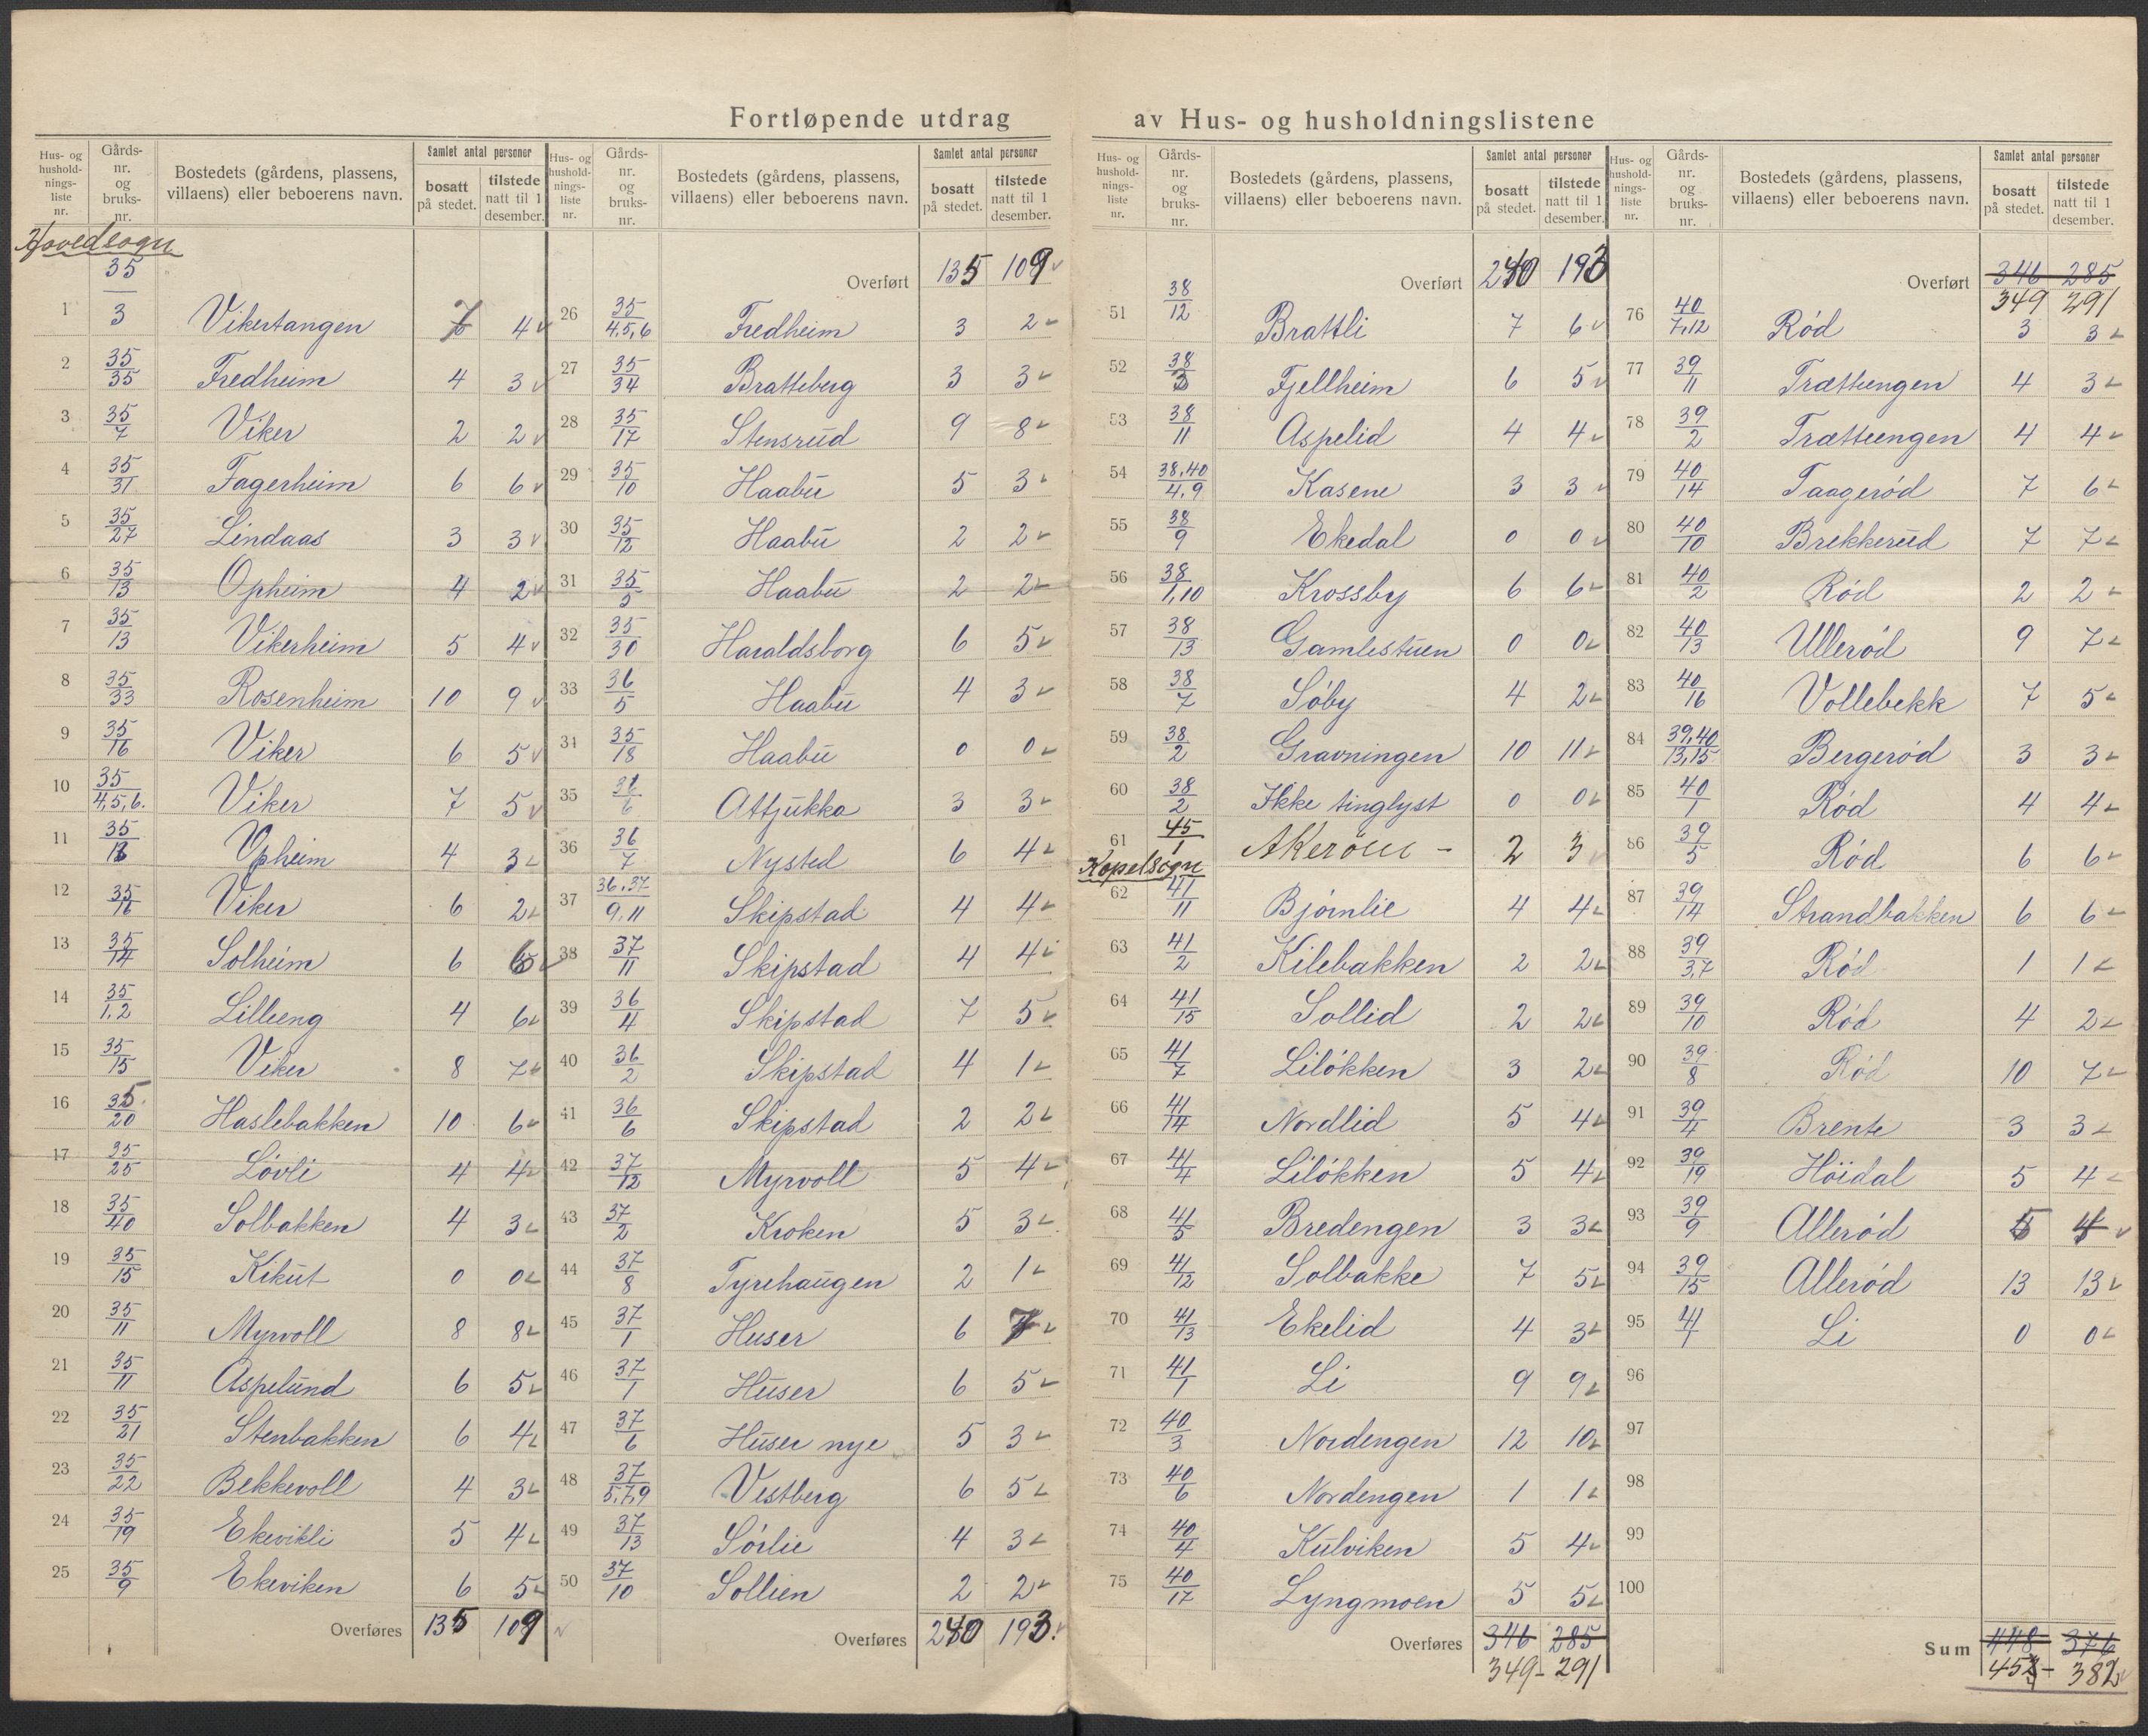 Fortløpende utdrag av Hus- og husholdningslistene
Hus- og husholdningsliste nr. | Gårdsnr. og bruksnr. | Bostedets (gårdens, plassens, villaens) eller beboerens navn. | Samlet antal personer bosatt på stedet. | tilstede natt til 1 desember.
Hovedsogn
1 35/3 Vikertangen 7 4
2 35/35 Fredheim 4 3
3 35/7 Viker 2 2
4 35/31 Fagerheim 6 6
5 35/27 Lindaas 3 3
6 35/13 Opheim 4 2
7 35/13 Vikerheim 5 4
8 35/33 Rosenheim 10 9
9 35/16 Viker 6 5
10 35/4,5,6. Viker 7 5
11 35/13 Opheim 4 3
12 35/16 Viker 6 2
13 35/14 Solheim 6 6
14 35/1,2 Lilleeng 4 6
15 35/15 Viker 8 7
16 35/20 Haslebakken 10 6
17 35/25 Lövli 4 4
18 35/40 Solbakken 4 3
19 35/15 Kikut 0 0
20 35/11 Myrvoll 8 8
21 35/11 Aspelund 6 5
22 35/21 Stenbakken 6 4
23 35/22 Bekkevoll 4 3
24 35/19 Ekevikli 5 4
25 35/9 Ekeviken 6 5
Overføres 135 109
Hus- og husholdningsliste nr. | Gårdsnr. og bruksnr. | Bostedets (gårdens, plassens, villaens) eller beboerens navn. | Samlet antal personer bosatt på stedet. | tilstede natt til 1 desember.
Overført 135 109
26 35/4,5,6 Fredheim 3 2
27 35/34 Bratteberg 3 3
28 35/17 Stensrud 9 8
29 35/10 Haabu 5 3
30 35/12 Haabu 2 2
31 35/5 Haabu 2 2
32 35/30 Haraldsborg 6 5
33 36/5 Haabu 4 3
34 35/18 Haabu 0 0
35 36/6 Attjukka 3 3
36 36/7 Nysted 6 4
37 36,37/9,11 Skipstad 4 4
38 37/11 Skipstad 4 4
39 36/4 Skipstad 7 5
40 36/2 Skipstad 4 1
41 36/6 Skipstad 2 2
42 37/12 Myrvoll 5 4
43 37/2 Kroken 5 3
44 37/8 Tyrehaugen 2 1
45 37/1 Huser 6 7
46 37/1 Huser 6 5
47 37/6 Huser nye 5 3
48 37/5,7,9 Vestberg 6 5
49 37/13 Sörlie 4 3
50 37/10 Sollien 2 2
Overføres 240 193.
Hus- og husholdningsliste nr. | Gårdsnr. og bruksnr. | Bostedets (gårdens, plassens, villaens) eller beboerens navn. | Samlet antal personer bosatt på stedet. | tilstede natt til 1 desember.
Overført 240 193
51 38/12 Brattli 7 6
52 38/3 Fjellheim 6 5
53 38/11 Aspelid 4 4
54 38,40/4,9 Kasene 3 3
55 38/9 Ekedal 0 0
56 38/1,10 Krossby 6 6
57 38/13 Gamlestuen 0 0
58 38/7 Söby 4 2
59 38/2 Gravningen 10 11
60 38/2 Ikke tinglyst 0 0
61 45/1 Akeröen - 2 3
Kapelsogn
62 41/11 Björnlie 4 4
63 41/2 Kilebakken 2 2
64 41/15 Sollid 2 2
65 41/7 Lilökken 3 2
66 41/14 Nordlid 5 4
67 41/4 Lilökken 5 4
68 41/5 Bredengen 3 3
69 41/12 Solbakke 7 5
70 41/13 Ekelid 4 3
71 41/1 Li 9 9
72 40/3 Nordengen 12 10
73 40/6 Nordengen 1 1
74 40/4 Kulviken 5 4
75 40/17 Lyngmoen 5 5
Overføres 346 285
349 - 291
Hus- og husholdningsliste nr. | Gårdsnr. og bruksnr. | Bostedets (gårdens, plassens, villaens) eller beboerens navn. | Samlet antal personer bosatt på stedet. | tilstede natt til 1 desember.
Overført 346 285
349 291
76 40/7,12 Röd 3 3
77 39/11 Trættengen 4 3
78 39/2 Trætteengen 4 4
79 40/14 Taageröd 7 6
80 40/10 Brekkerud 7 7
81 40/2 Röd 2 2
82 40/13 Ulleröd 9 7
83 40/16 Vollebekk 7 5
84 39,40/13,15 Bergeröd 3 3
85 40/1 Röd 4 4
86 39/5 Röd 6 6
87 39/14 Strandbakken 6 6
88 39/3,7 Röd 1 1
89 39/10 Röd 4 2
90 39/8 Röd 10 7
91 39/4 Brente 3 3
92 39/19 Höidal 5 4
93 39/9 Alleröd 5 4
94 39/15 Alleröd 13 13
95 41/1 Li 0 0
96
97
98
99
100
Sum 448 376
452 - 382